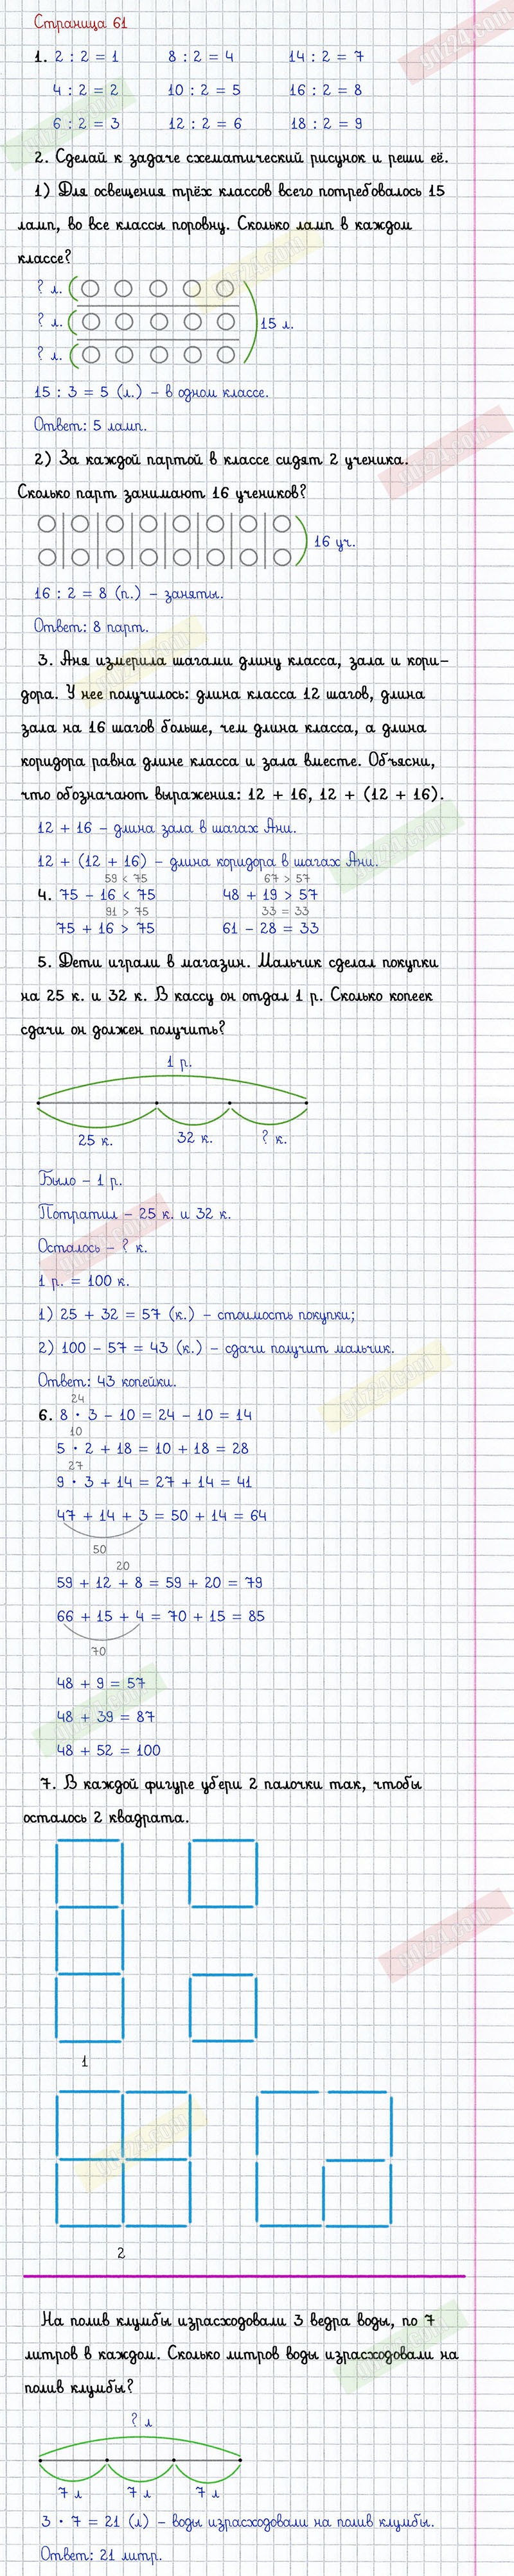 Страница 61
1. 2 : 2 = 1 8 : 2 = 4 14 : 2 = 7
4 : 2 = 2 10 : 2 = 5 16 : 2 = 8
6 : 2 = 3 12 : 2 = 6 18 : 2 = 9
2. Сделай к задаче схематический рисунок и реши её.
1) Для освещения трёх классов всего потребовалось 15
ламп, во все классы поровну. Сколько ламп в каждом
классе?
? л.
? л. 15 л.
? л.
15 : 3 = 5 (л.) – в одном классе.
Ответ: 5 ламп.
2) За каждой партой в классе сидят 2 ученика.
Сколько парт занимают 16 учеников?
16 уч.
16 : 2 = 8 (п.) – заняты.
Ответ: 8 парт.
3. Аня измерила шагами длину класса, зала и кори-
дора. У нее получилось: длина класса 12 шагов, длина
зала на 16 шагов больше, чем длина класса, а длина
коридора равна длине класса и зала вместе. Объясни,
что обозначают выражения: 12 + 16, 12 + (12 + 16).
12 + 16 – длина зала в шагах Ани.
12 + (12 + 16) – длина коридора в шагах Ани.
59 < 75 67 > 57
4. 75 – 16 < 75 48 + 19 > 57
91 > 75 33 = 33
75 + 16 > 75 61 – 28 = 33
5. Дети играли в магазин. Мальчик сделал покупки
на 25 к. и 32 к. В кассу он отдал 1 р. Сколько копеек
сдачи он должен получить?
1 р.
25 к. 32 к. ? к.
Было – 1 р.
Потратил – 25 к. и 32 к.
Осталось – ? к.
1 р. = 100 к.
1) 25 + 32 = 57 (к.) – стоимость покупки;
2) 100 – 57 = 43 (к.) – сдачи получит мальчик.
Ответ: 43 копейки.
24
6. 8 · 3 – 10 = 24 – 10 = 14
10
5 · 2 + 18 = 10 + 18 = 28
27
9 · 3 + 14 = 27 + 14 = 41
47 + 14 + 3 = 50 + 14 = 64
50
20
59 + 12 + 8 = 59 + 20 = 79
66 + 15 + 4 = 70 + 15 = 85
70
48 + 9 = 57
48 + 39 = 87
48 + 52 = 100
7. В каждой фигуре убери 2 палочки так, чтобы
осталось 2 квадрата.
1
2
На полив клумбы израсходовали 3 ведра воды, по 7
литров в каждом. Сколько литров воды израсходовали на
полив клумбы?
? л
7 л 7 л 7 л
3 · 7 = 21 (л) – воды израсходовали на полив клумбы.
Ответ: 21 литр.